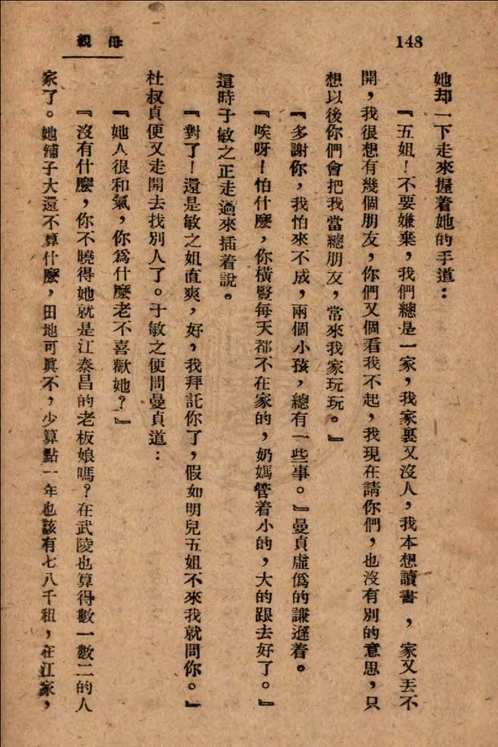 148
母親
她却一下走來握着她的手道：
『五姐！不要嫌棄，我們總是一家，我家裏又沒人，我本想讀書，家又丟不
開，我很想有幾個朋友，你們又個看我不起，我現在請你們，也沒有別的意思，只
想以後你們會把我當總朋友，常來我家玩玩。』
『多謝你，我怕來不成，兩個小孩，總有一些事。』曼貞虛僞的謙遜着。
『唉呀！怕什麽，你橫豎每天都不在家的，奶媽管着小的，大的跟去好了。』
這時于敏之正走過來插着說。
『對了！還是敏之姐直爽，好，我拜託你了，假如明兒五姐不來我就問你。』
杜叔貞便又走開去找別人了。于敏之便問曼貞道：
『她人很和氣，你爲什麽老不喜歡她？』
『沒有什麽，你不曉得她就是江泰昌的老板娘嗎？在武陵也算得數一數二的人
家了。她舖子大還不算什麽，田地可眞不，少算點一年也該有七八千租，在江家，